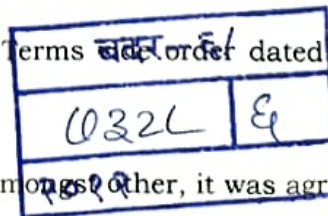 Terms बदर-६/ order dated
७३२८ ६
mongst other, it was agr